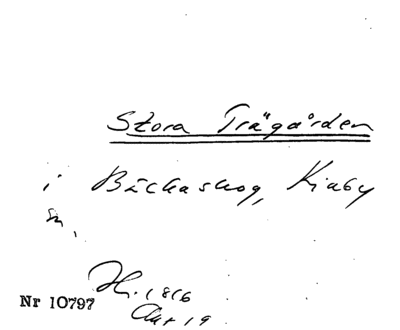 Stora Trägården
i Bäckaskog, Kiaby
sn.
H. 1816
Nr 10797
Akt 19